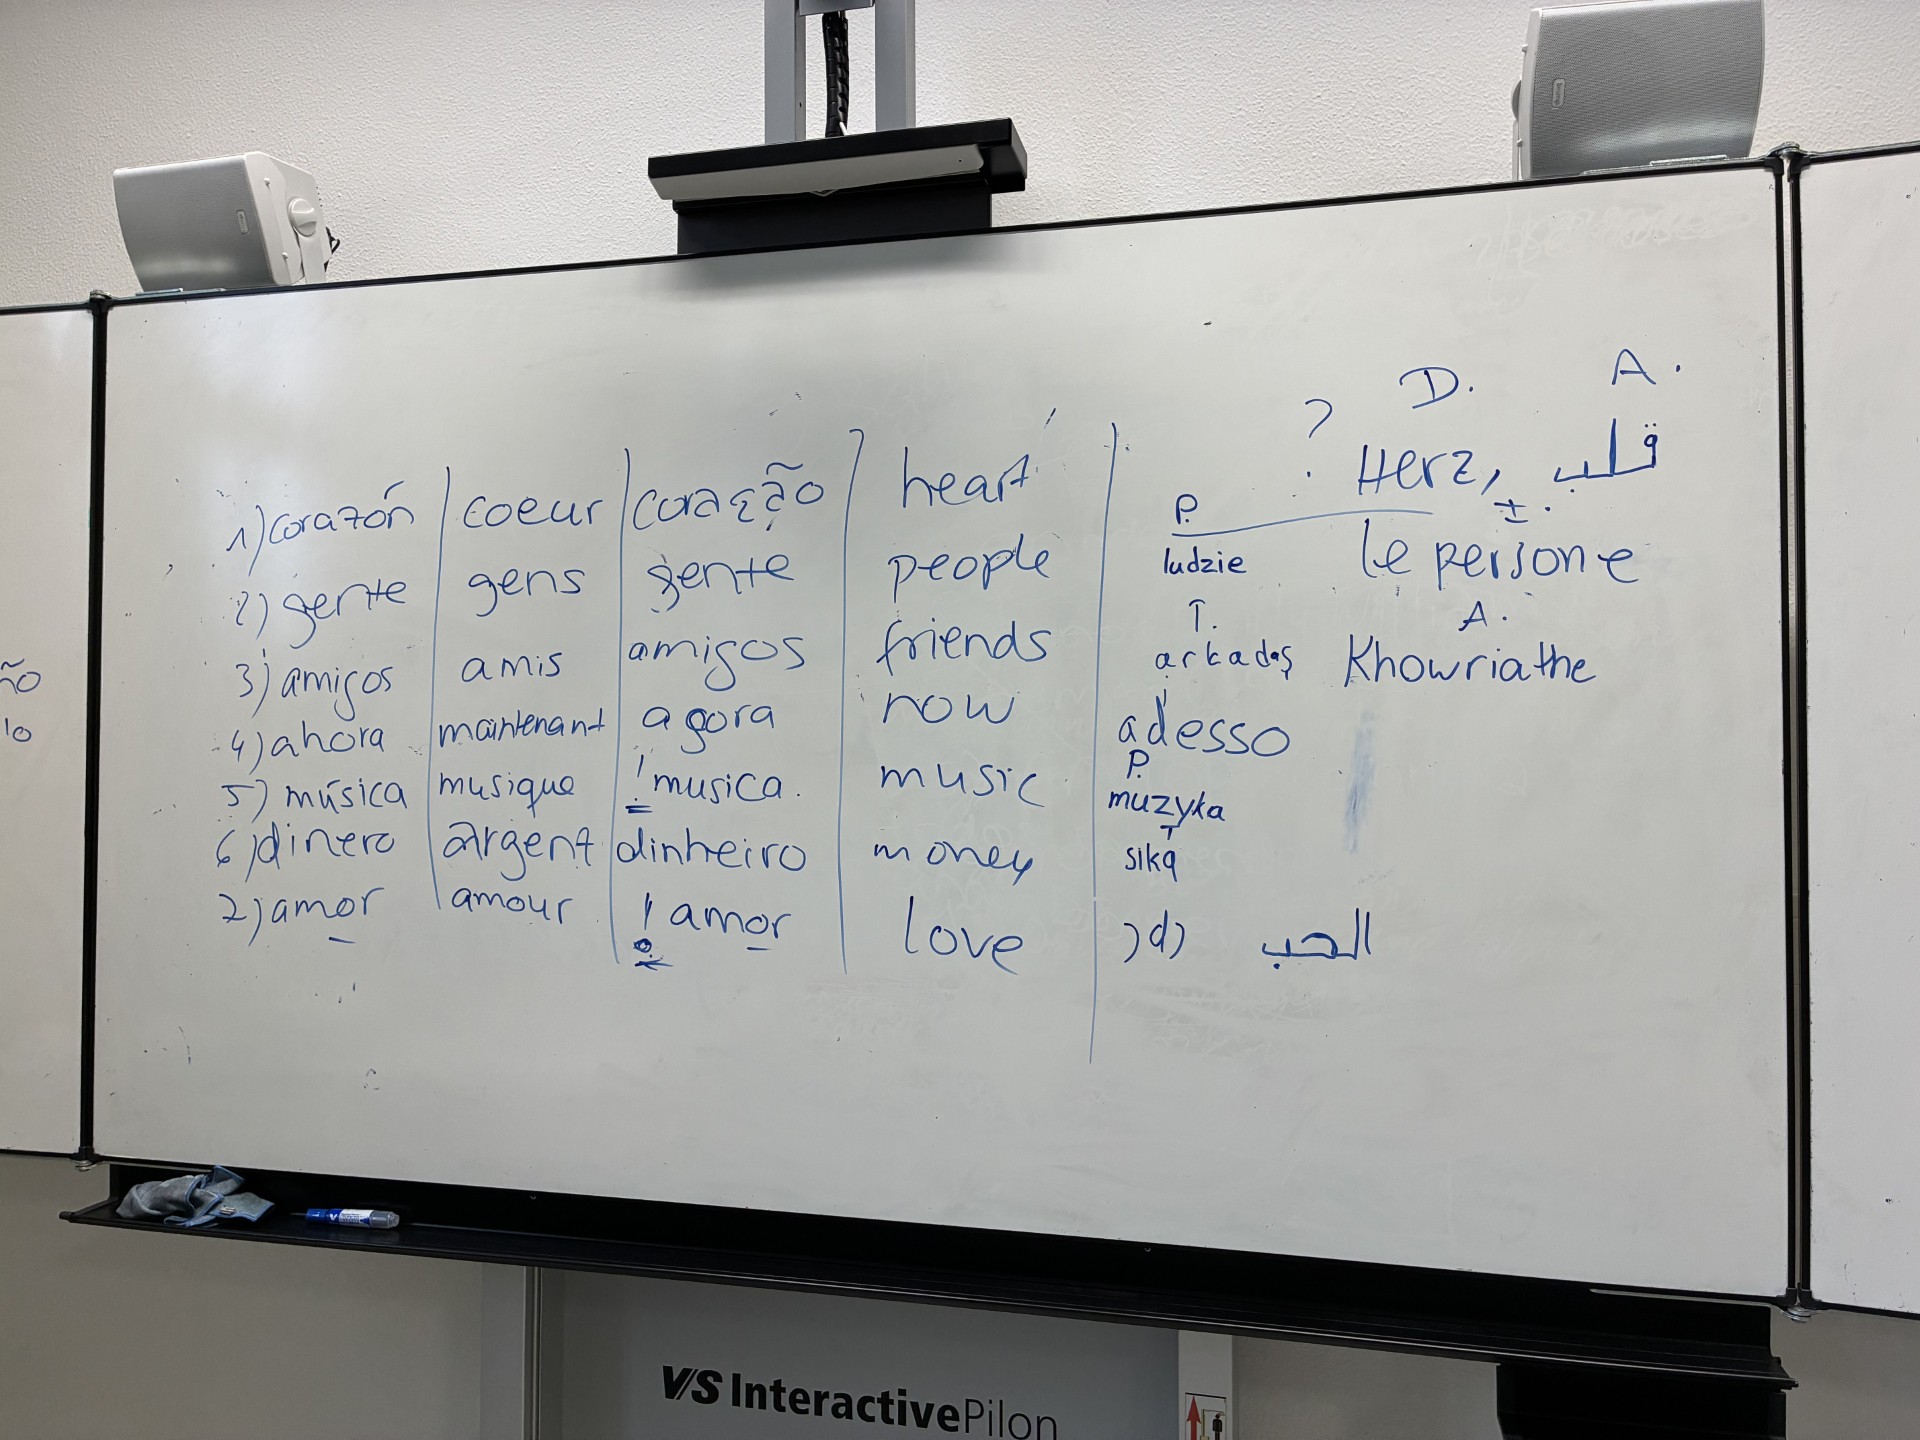 D. A.
?
1) corazón coeur coração heart Herz, قلب
P. I.
2) gente gens gente people ludzie le persone
T. A.
3) amigos amis amigos friends arkadaş Khowriathe
I
4) ahora maintenant agora now adesso
P.
5) música musique ! musica. music muzyka
T
6) dinero argent dinheiro money sika
7) amor amour ! amor love الحب
ño
lo
VS InteractivePilon